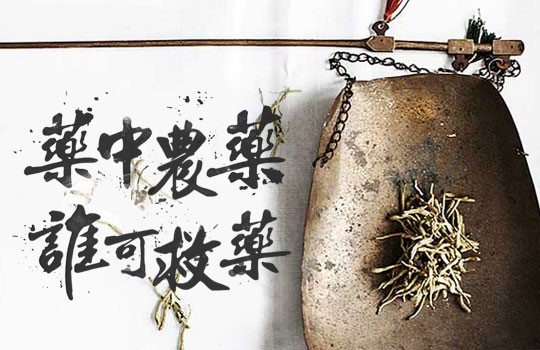 藥中農藥
誰可救藥